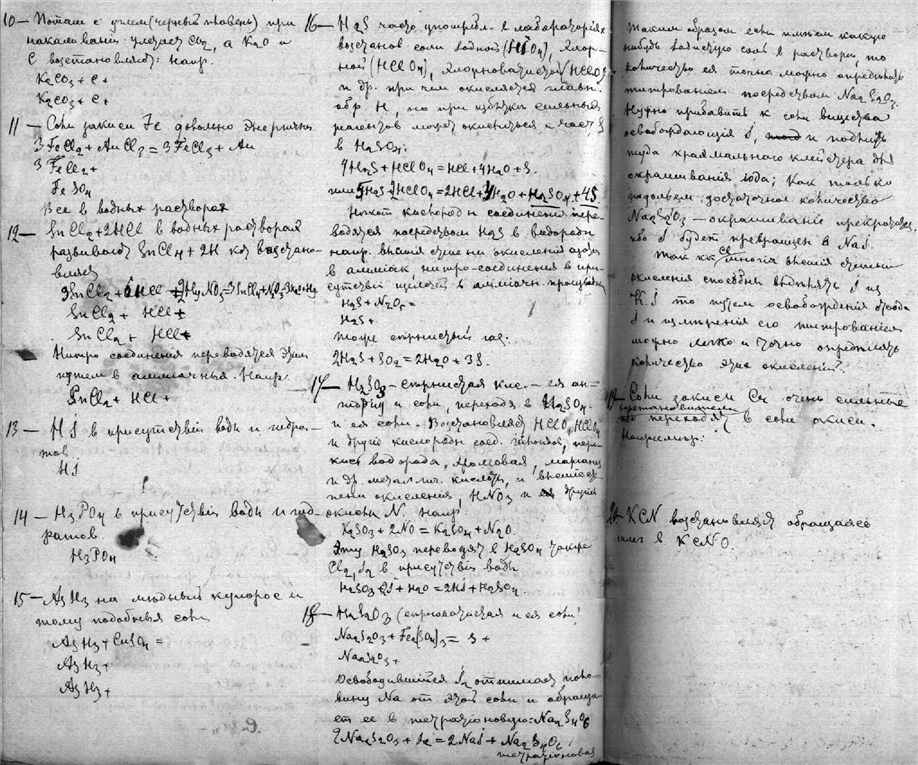 10 — Поташ с углем (черный плавень) при
накаливании улетает CO2, а K2O и
C возстановляют: напр.
K2CO3 + C +
K2CO3 + C +
11 — Соли закиси Fe довольно энергичны
3 FeCl2 + AuCl3 = 3 FeCl3 + Au
3 FeCl2 +
FeSO4
Все в водных растворах
12 — SnCl2 + 2HCl в водных растворах
развивают SnCl4 + 2H
SnCl2 + HCl +
SnCl2 + HCl +
Нитро соединения переводятся этим
путем в аммиачныя. Напр.
SnCl2 + HCl +
13 — HJ в присутствии воды и
HJ
14 — H3PO4 в присутствии воды и гид-
ратов
H3PO4
15 — AsH3 на медный купорос и
тому подобныя соли
AsH3 + CuSO4 =
AsH3 +
AsH3 +
16 — H2S часто употребл. в лабораториях
возстанов. соли
ной (HClO4), хлорноватистой (HClO)
и др. при чем окисляется главн.
обр. H, но при избытке сильных
реагентов может окисляться и часть S
в H2SO4:
4H2S + HClO4 = HCl + 4H2O + S.
или 5H2S + 2HClO4 = 2HCl + 4H2O + H2SO4 + 4S
кислород и соединения пере-
водятся посредством H2S в водороды
напр. высшия степени окисления азота
в аммиак, нитро-соединения в при-
сутствии щелочей в аммиачн. производныя
H2S + N2O5 =
H2S +
тоже сернистый газ:
2H2S + SO2 = 2H2O + 3S.
17 — H2SO3 — сернистая кис. — ея ан-
гидрид и соли, переходя в H2SO4.
и ея соли. Возстановляют HClO, HClO4
и другие кислородн. соед. галоидов, пере-
кись водорода, хромовая, марганц.
и др. металлич. кислоты, и высшия сте-
пени окисления, HNO3 и другие
окислы N. Напр.
K2SO3 + 2NO = K2SO4 + N2O.
Эту H2SO3 переводят в H2SO4 также
Cl2, J2 в присутствии воды
H2SO3 + 2J + H2O = 2HJ + H2SO4.
18 — H2S2O3 (серноватистая и ея соли)
Na2S2O3 + Fe2(SO4)3 = S +
Na2S2O3 +
Освободившийся J2 отнимает поло-
вину Na от этой соли и обраща-
ет ее в тетратионовую: Na2S4O6
2Na2S2O3 + J2 = 2NaJ + Na2S4O6
тетратионовая
таким образом если имеем какую
нибудь
количество ея точно можно определить
титрованием посредством Na2S2O3.
Нужно прибавить к соли вещества
освобождающия J, и подлить
туда крахмального клейстера для
окрашивания иода; как только
подольем достаточное количество
Na2S2O3 — окрашивание прекратится,
ибо J будет превращен в NaJ.
Так как многия высшия степени
окисления способны выделять J из
KJ то путем освобождения
J и измерения его титрованием
можно легко и точно определять
количество этих окислений.
19 — Соли закиси Cu очень сильные
возстановители
переходят в соли окиси.
Например:
20 — KCN возстановляет обращаясь
в KCNO